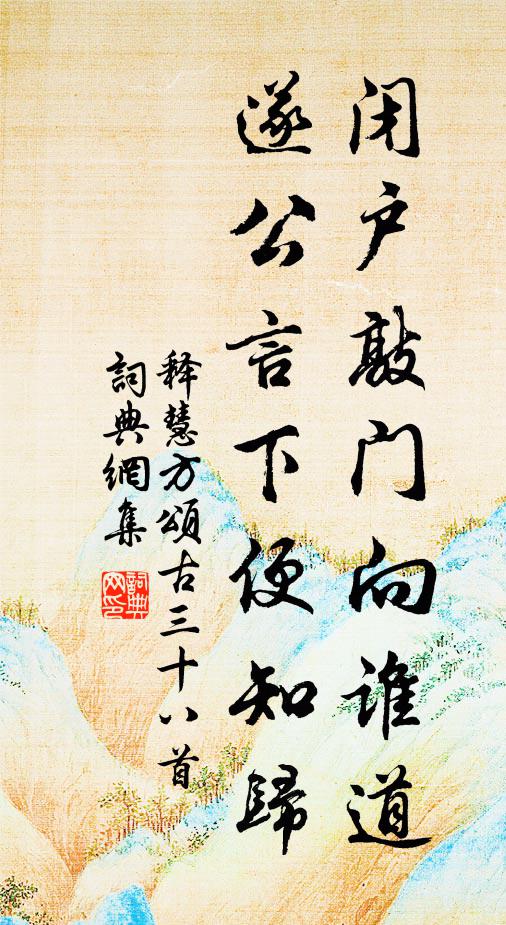 闭户敲门向谁道
遂公言下便知歸
释慧方頌古三十八首
詞典網集
詞典网印